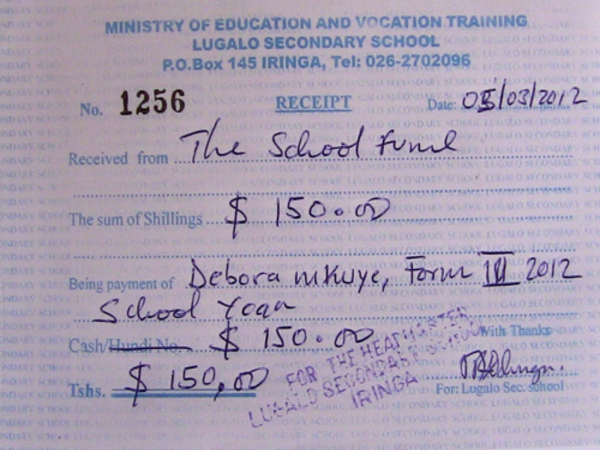 MINISTRY OF EDUCATION AND VOCATION TRAINING
LUGALO SECONDARY SCHOOL
P.O.Box 145 IRINGA, Tel: 026-2702096
No. 1256 RECEIPT Date: 05/03/2012
Received from The School Fund
The sum of Shillings $ 150.00
Being payment of Debora mkuye, Form III 2012
School Year
Cash/Hundi No. $ 150.00 With Thanks
Tshs. $ 150,00 For: Lugalo Sec. school
FOR THE HEADMASTER
LUGALO SECONDARY SCHOOL
IRINGA